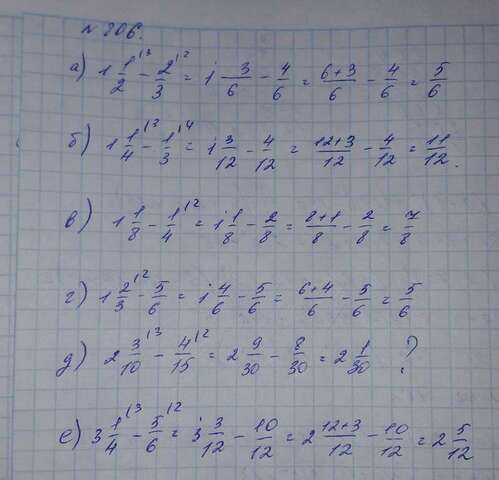 № 806.
а) 1 1/2 ¹³ - 2/3 ¹² = 1 3/6 - 4/6 = 6+3/6 - 4/6 = 5/6
б) 1 1/4 ¹³ - 1/3 ¹⁴ = 1 3/12 - 4/12 = 12+3/12 - 4/12 = 11/12.
в) 1 1/8 - 1/4 ¹² = 1 1/8 - 2/8 = 8+1/8 - 2/8 = 7/8
г) 1 2/3 ¹² - 5/6 = 1 4/6 - 5/6 = 6+4/6 - 5/6 = 5/6
д) 2 3/10 ¹³ - 4/15 ¹² = 2 9/30 - 8/30 = 2 1/30 ?
е) 3 1/4 ¹³ - 5/6 ¹² = 3 3/12 - 10/12 = 2 12+3/12 - 10/12 = 2 5/12